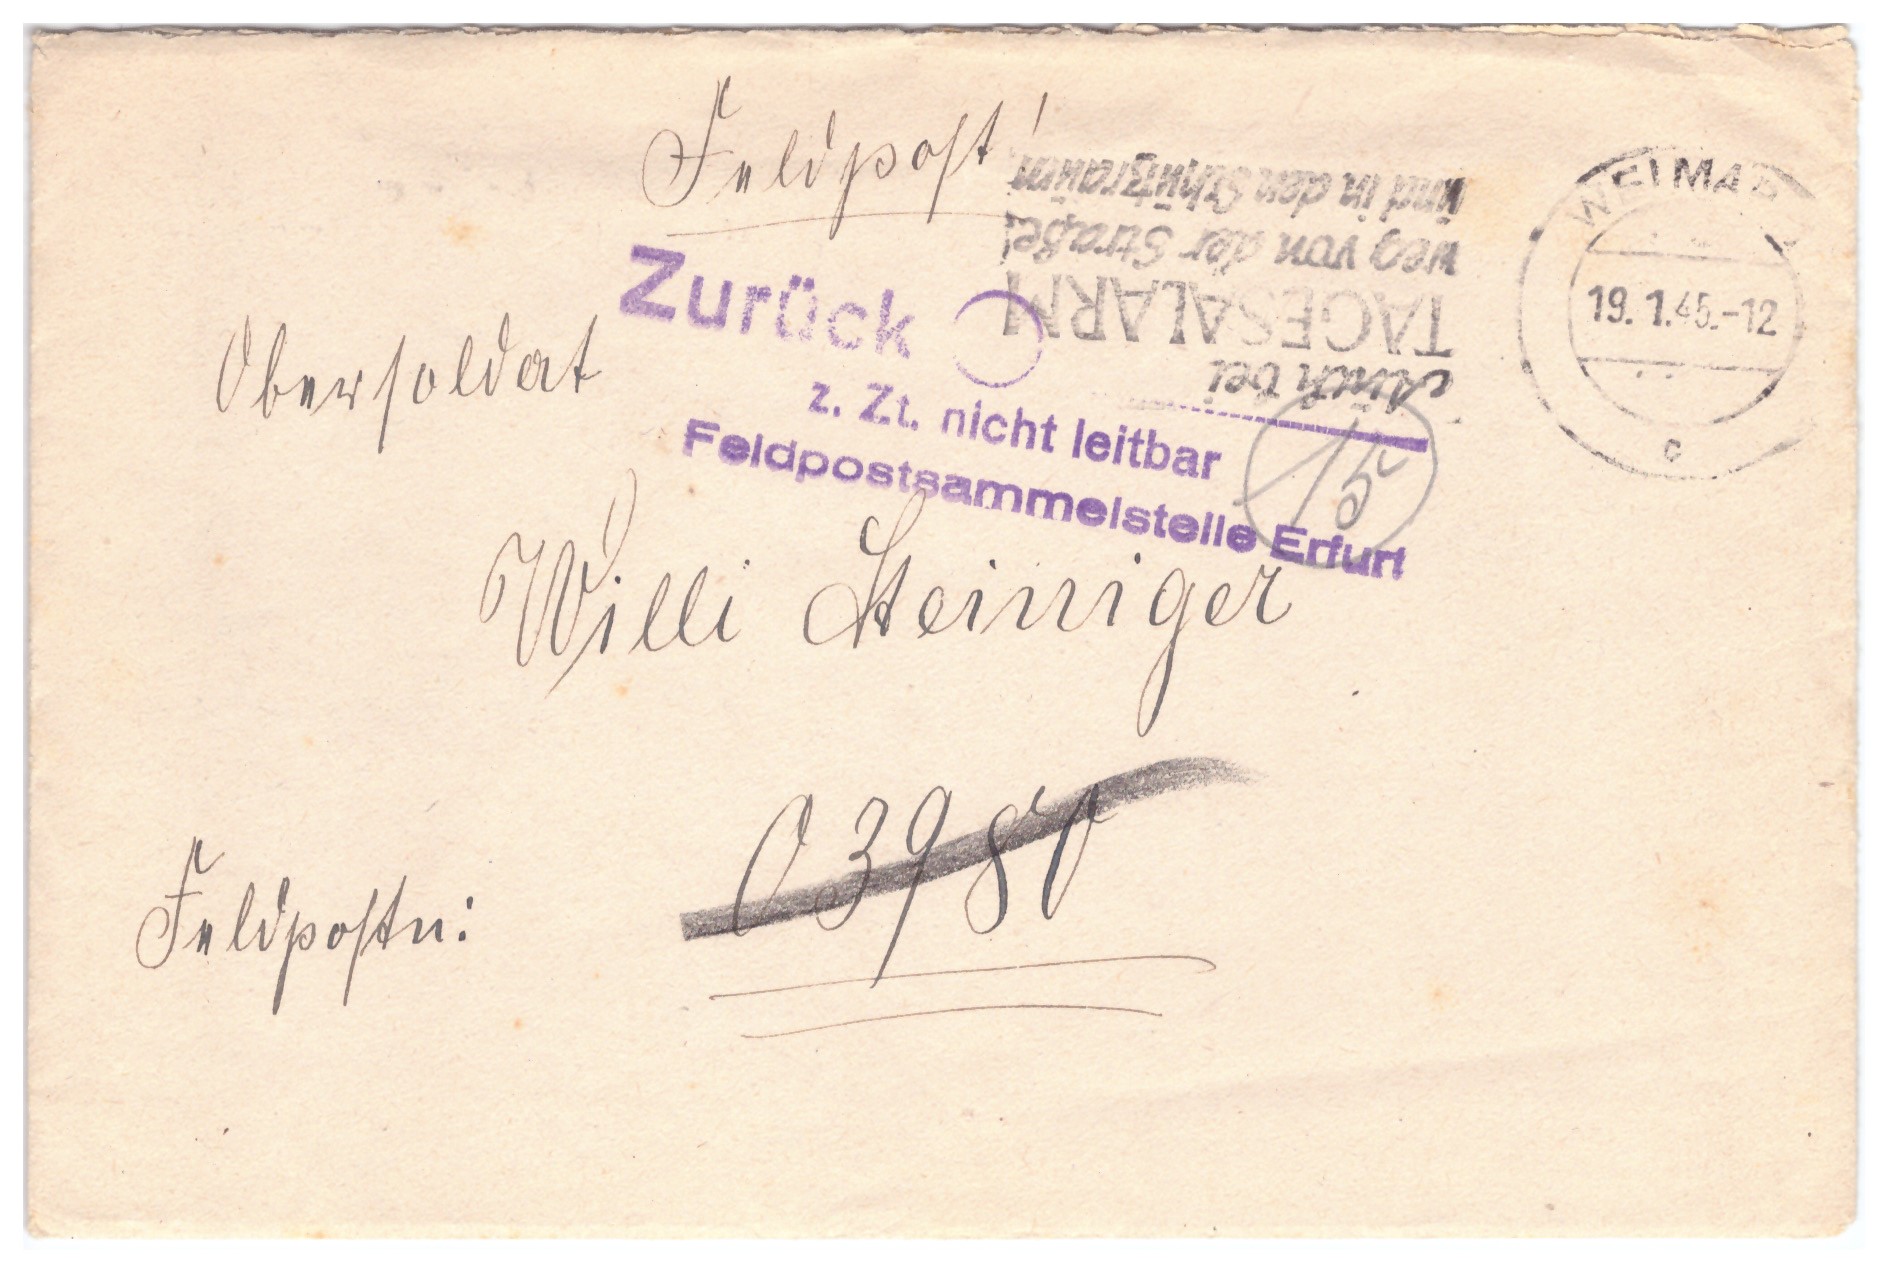 Feldpost!
Auch bei
TAGESALARM
weg von der Straße!
und in den Schutzraum
WEIMAR
19.1.45.-12
c
Zurück
z. Zt. nicht leitbar
Feldpostsammelstelle Erfurt
15
Obersoldat
Willi Steiniger
Feldpostn: 03980